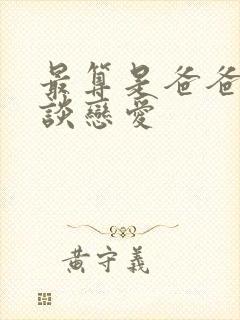 最算是爸爸
談戀愛
黃守義